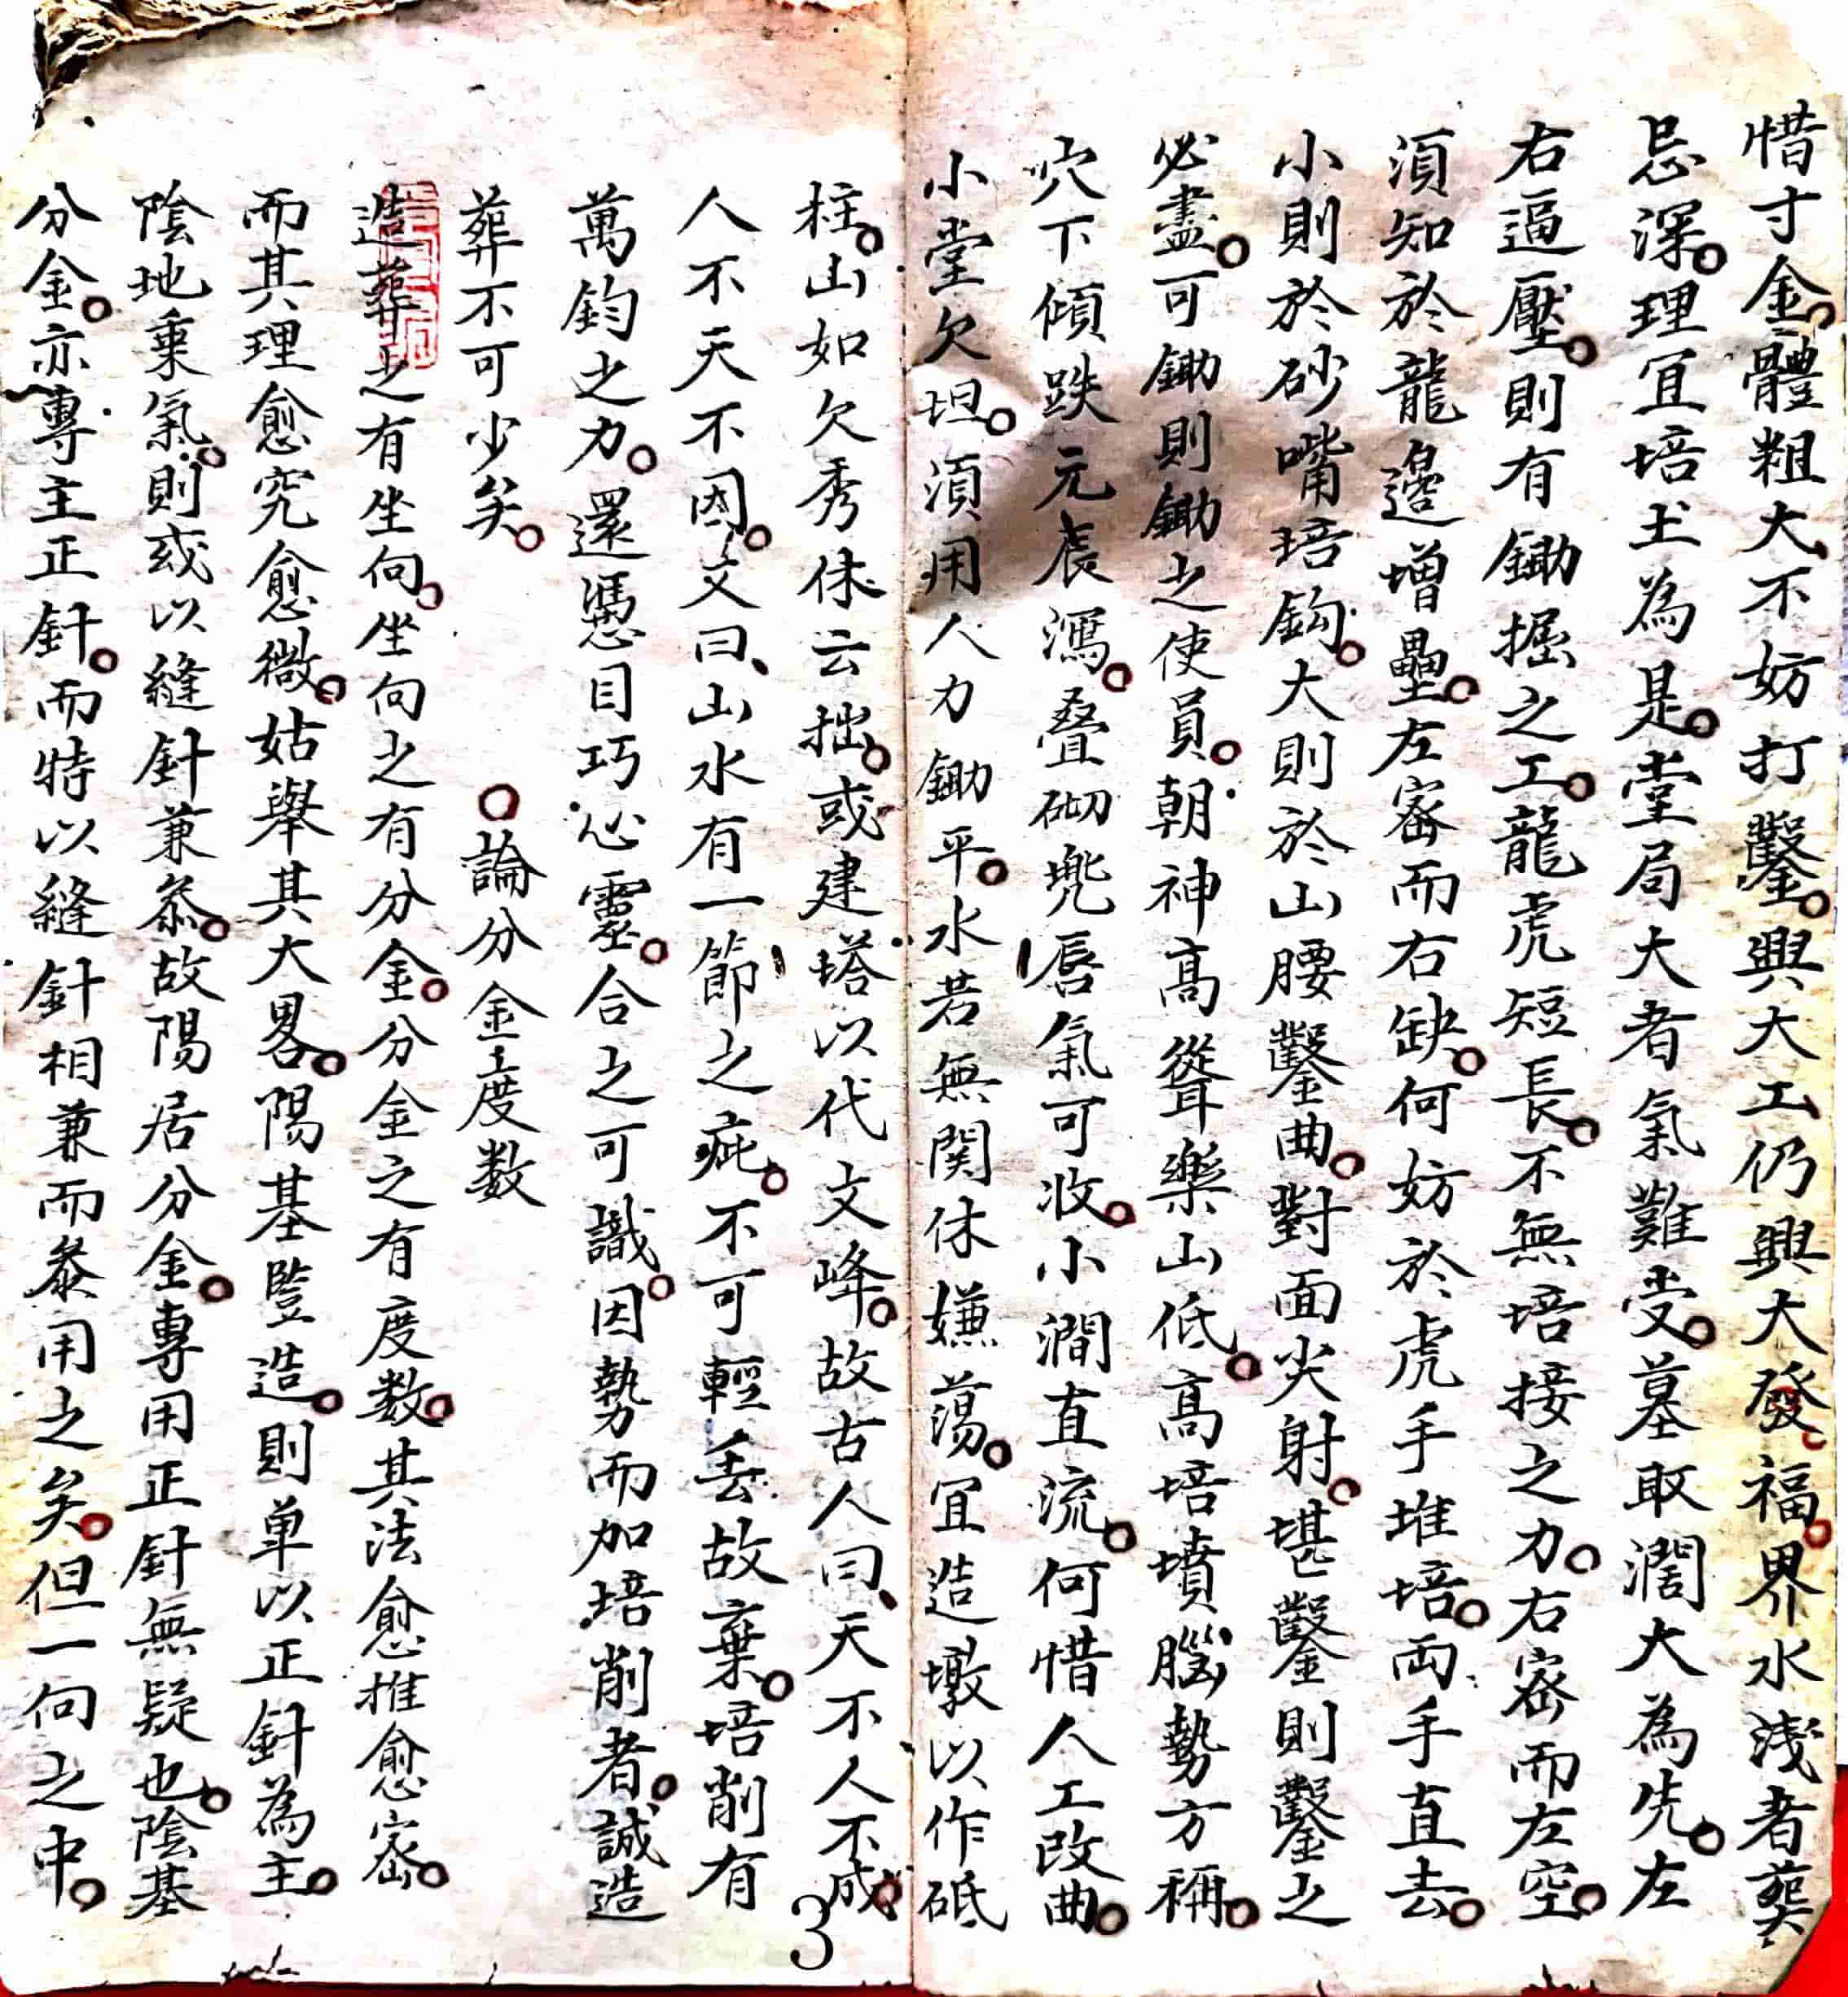 惜寸金。體粗大、不妨打鑿。興大工仍興大發。福。界水淺者葬
忌深。理宜培土為是。堂局大者氣難受。墓取濶大為先。左
右逼壓。則有鋤掘之工。龍虎短長。不無培接之力。右密而左空。
須知於龍邉增壘。左密而右缺。何妨於虎手堆培。両手直去。
小則於砂嘴培鈎。大則於山腰鑿曲。對面尖射。堪鑿則鑿之
必盡。可鋤則鋤之使員。朝神高聳樂山低。高培墳腦勢方稱。
穴下傾跌元辰瀉。叠砌兠唇氣可收。小澗直流。何惜人工改曲。
小堂欠坦。須用人力鋤平。水若無関休嫌蕩。宜造墩以作砥
柱。山如欠秀休云拙。或建塔以代文峰。故古人曰、天不人不成。
人不天不因。文曰、山水有一節之疵。不可輕丢故棄。培削有
萬鈞之力。還憑目巧心靈。合之可識。因勢而加培削者。誠造
葬不可少矣。
〇論分金度数
造葬之有坐向。坐向之有分金。分金之有度数。其法愈推愈密。
而其理愈究愈微。姑舉其大畧。陽基豎造。則单以正針為主。
陰地乗氣。則或以縫針兼叅。故陽居分金。專用正針無疑也。陰基
分金。亦專主正針。而特以縫針相兼而叅用之矣。但一向之中。
3